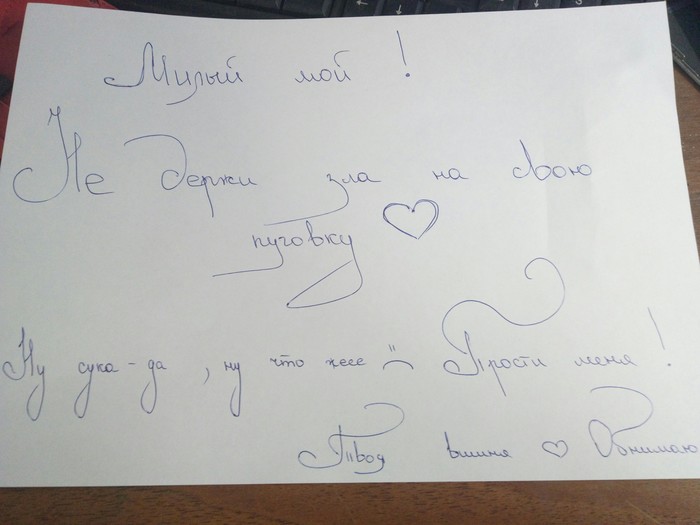 Милый мой!
Не держи зла на свою
пуговку ♡
Ну сука-да, ну что жеее :( Прости меня!
Твоя вишня ♡ Обнимаю